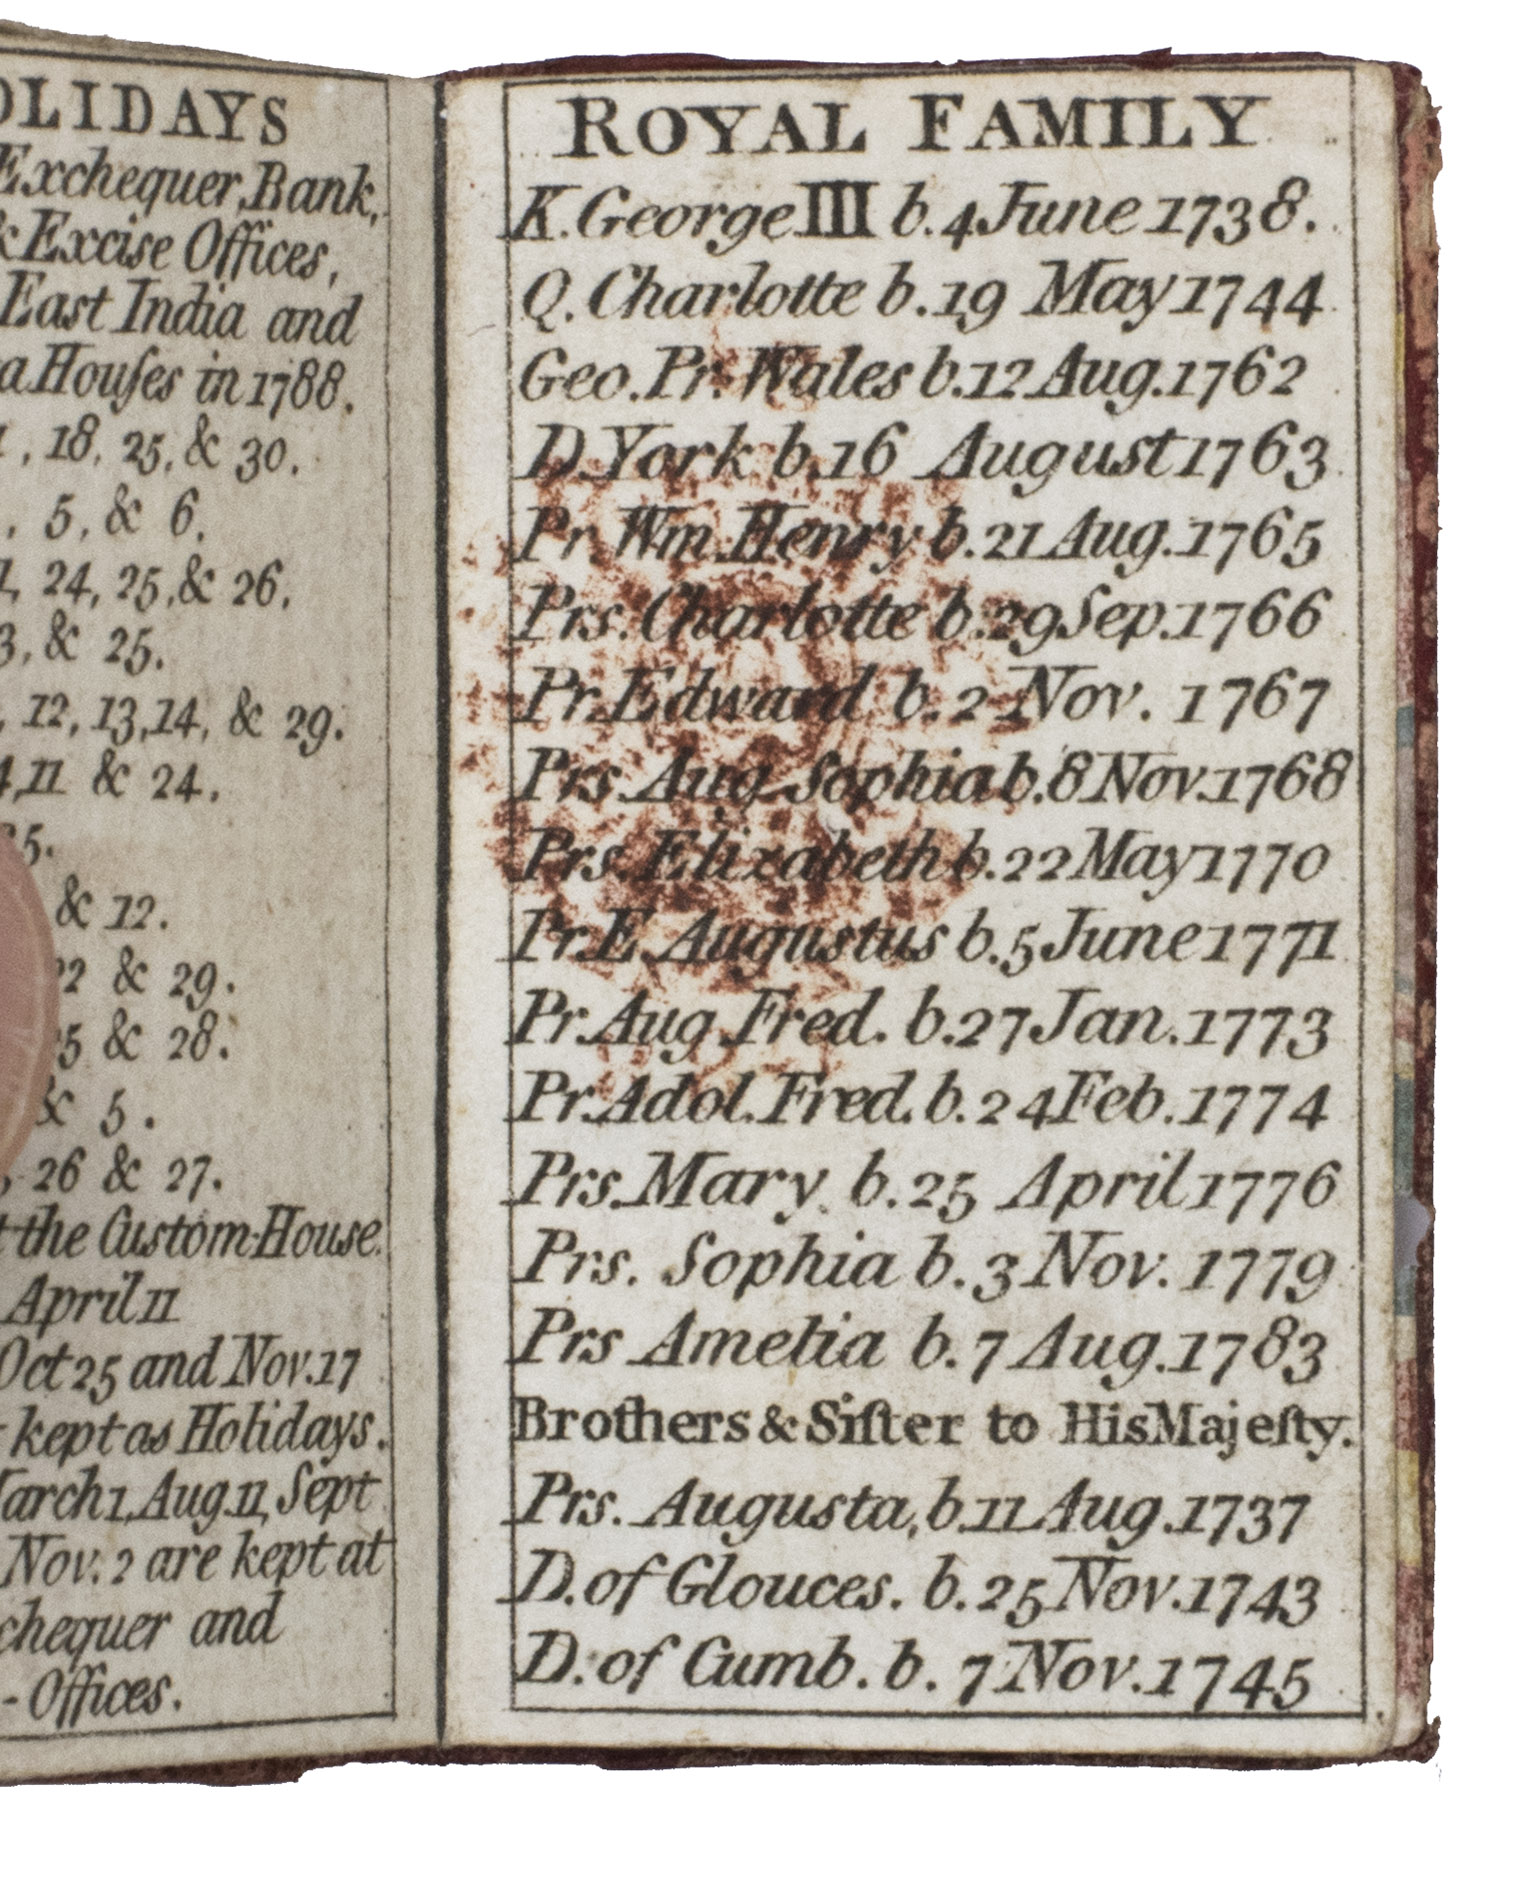 OLIDAYS
Exchequer, Bank,
& Excise Offices,
East India and
a Houſes in 1788.
, 18, 25, & 30.
, 5, & 6.
, 24, 25, & 26.
3, & 25.
, 12, 13, 14, & 29.
4, 11 & 24.
5.
& 12.
22 & 29.
25 & 28.
& 5.
, 26 & 27.
the Custom-House.
April 11
Oct 25 and Nov. 17
kept as Holidays.
March 1, Aug. 11, Sept
Nov. 2 are kept at
chequer and
- Offices.
ROYAL FAMILY
K. George III b. 4 June 1738.
Q. Charlotte b. 19 May 1744
Geo. Pr. Wales b. 12 Aug. 1762
D. York b. 16 August 1763
Pr. Wm. Henry b. 21 Aug. 1765
Prs. Charlotte b. 29 Sep. 1766
Pr. Edward b. 2 Nov. 1767
Prs. Aug. Sophia b. 8 Nov. 1768
Prs. Elizabeth b. 22 May 1770
Pr. E. Augustus b. 5 June 1771
Pr. Aug. Fred. b. 27 Jan. 1773
Pr. Adol. Fred. b. 24 Feb. 1774
Prs. Mary b. 25 April 1776
Prs. Sophia b. 3 Nov. 1779
Prs Amelia b. 7 Aug. 1783
Brothers & Siſter to His Majeſty.
Prs. Augusta, b. 11 Aug. 1737
D. of Glouces. b. 25 Nov. 1743
D. of Cumb. b. 7 Nov. 1745